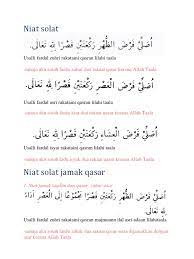 Niat solat
أُصَلِّيْ فَرْضَ الظُّهْرِ رَكْعَتَيْنِ قَصْرًا لِلَّهِ تَعَالَى.
Usolli fardal zuhri rakataini qasran lillahi taala
sahaja aku solat fardu dua rakaat qasar kerana Allah Taala
أُصَلِّيْ فَرْضَ العَصْرِ رَكْعَتَيْنِ قَصْرًا لِلَّهِ تَعَالَى.
Usolli fardal rakataini qasran lillahi taala
sahaja aku solat fardu dua rakaat qasar kerana Allah Taala
أُصَلِّيْ فَرْضَ العِشَاءِ رَكْعَتَيْنِ قَصْرًا لِلَّهِ تَعَالَى.
Usolli fardal rakataini qasran lillahi taala
sahaja aku solat fardu dua rakaat qasar kerana Allah Taala
Niat solat jamak qasar
1. Niat jamak taqdim dan qasar
أُصَلِّيْ فَرْضَ الظُّهْرِ رَكْعَتَيْنِ قَصْرًا مَجْمُوْعًا إِلَى العَصْرِ أَدَاءً
لِلَّهِ تَعَالَى.
Usolli fardal zuhri rakataini qasran majmuan lillahi taala
sahaja aku solat fardu dua rakaat qasar dengan
kerana Allah Taala